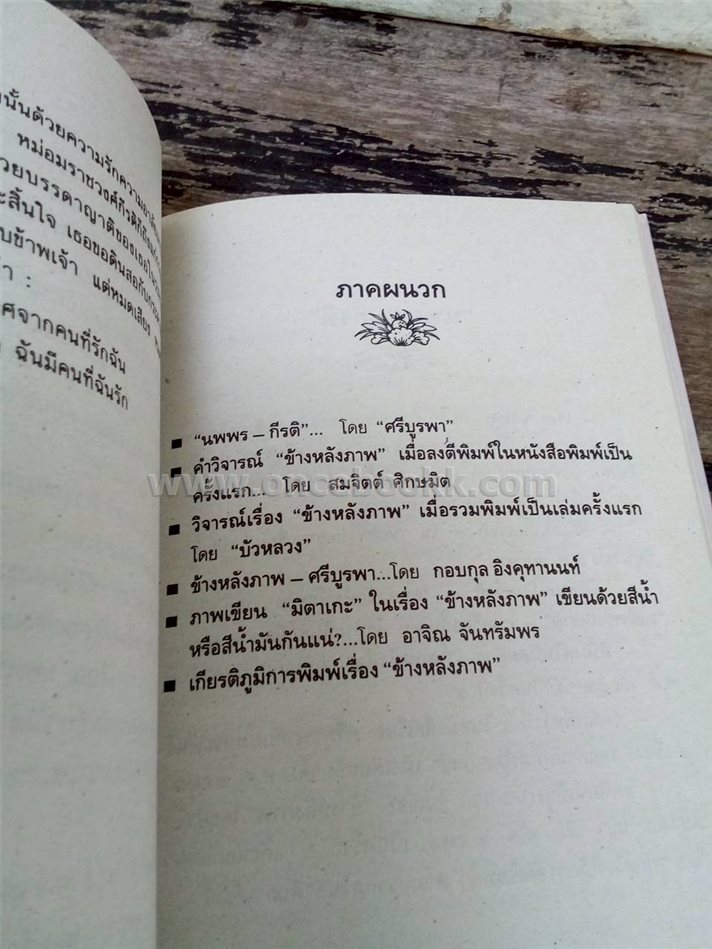 นั้นด้วยความรักความ
หม่อมราชวงศ์กีรติ
วยบรรดาญาติของเธอ
ะสิ้นใจ เธอขอดินสอกับ
บข้าพเจ้า แต่หมดเสียง
า :
ศจากคนที่รักฉัน
ฉันมีคนที่ฉันรัก
ภาคผนวก
■ “นพพร – กีรติ”... โดย “ศรีบูรพา”
■ คำวิจารณ์ “ข้างหลังภาพ” เมื่อลงตีพิมพ์ในหนังสือพิมพ์เป็น
ครั้งแรก... โดย สมจิตต์ ศิกษมัต
■ วิจารณ์เรื่อง “ข้างหลังภาพ” เมื่อรวมพิมพ์เป็นเล่มครั้งแรก
โดย “บัวหลวง”
■ ข้างหลังภาพ – ศรีบูรพา...โดย กอบกุล อิงคุทานนท์
■ ภาพเขียน “มิตาเกะ” ในเรื่อง “ข้างหลังภาพ” เขียนด้วยสีน้ำ
หรือสีน้ำมันกันแน่?...โดย อาจิณ จันทรัมพร
■ เกียรติภูมิการพิมพ์เรื่อง “ข้างหลังภาพ”
www.oncebookk.com